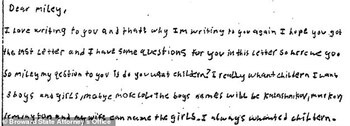 Dear miley,
I love writing to you and thats why I'm writing to you again I hope you got
the last letter and I have some questions for you in this letter so here we go
So miley my qestion to you is do you want children? I really whant childern I want
3 boys and girls, mabye more lol. the boys names will be
and my wife can name the girls. I always whanted childern.
© Broward State Attorney's Office